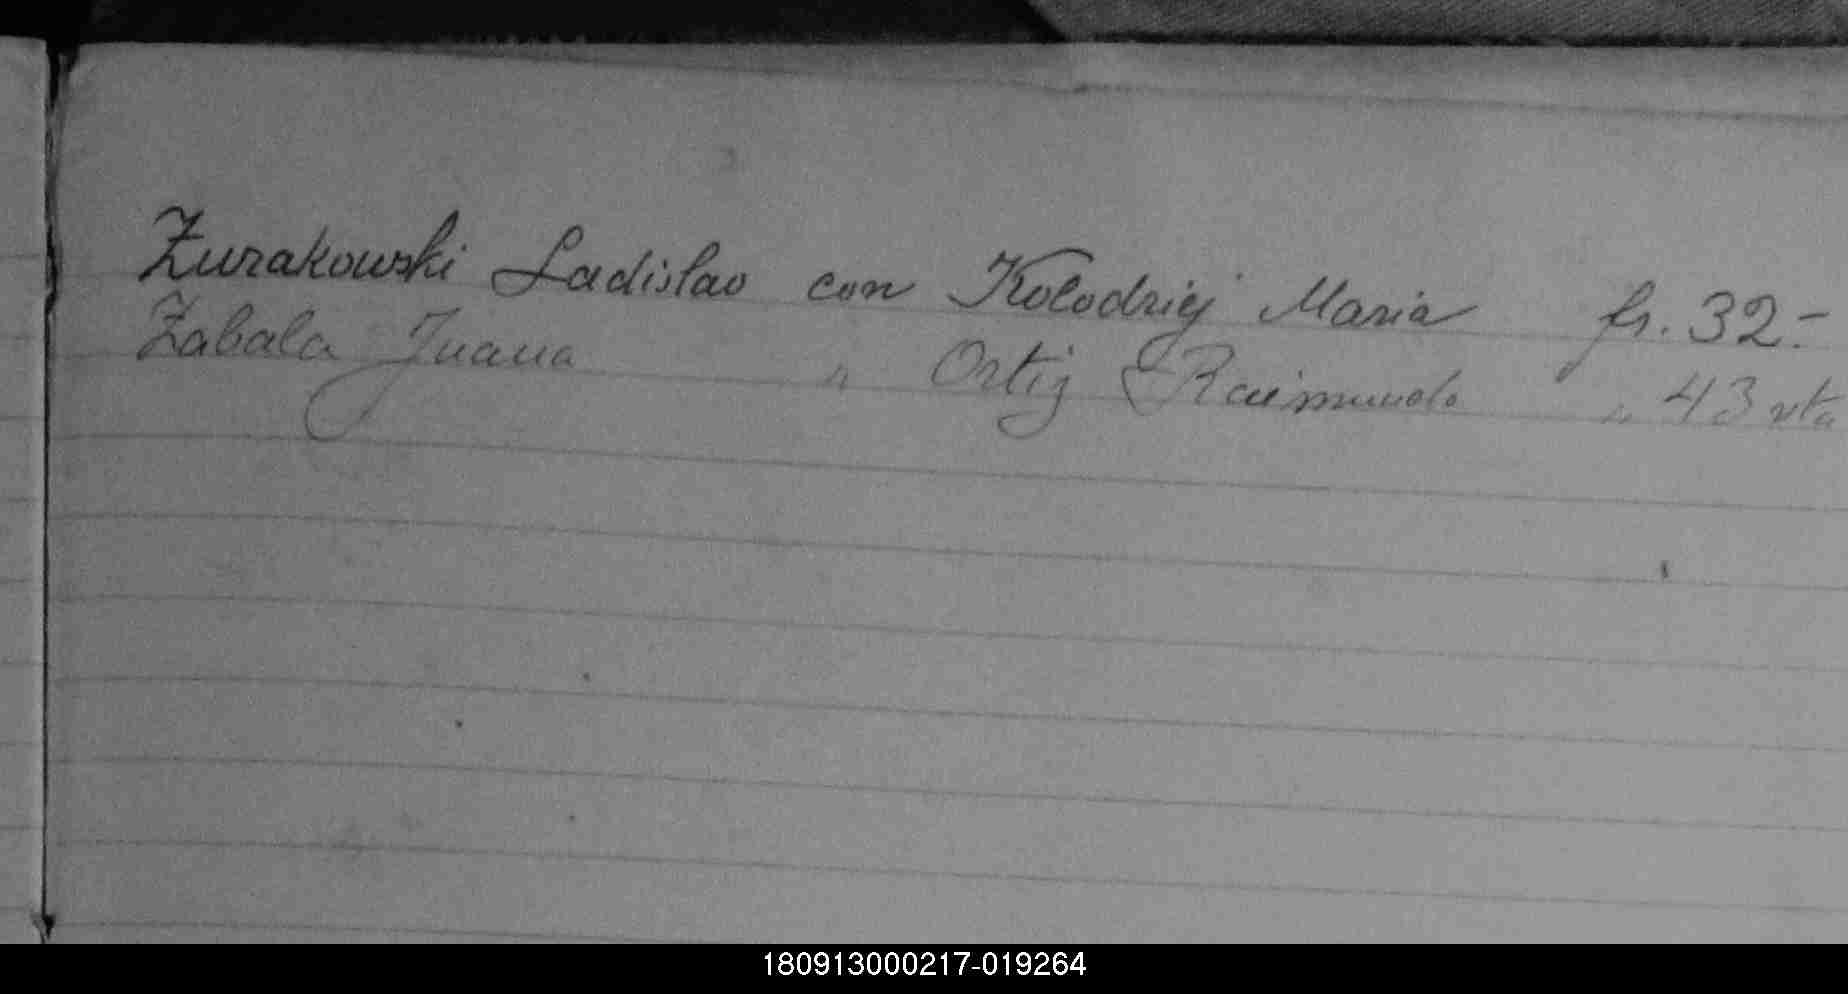 Zurakowski Ladislao con Kolodziej Maria fs. 32.-
Zabala Juana " Ortiz Raimundo " 43 vta
180913000217-019264